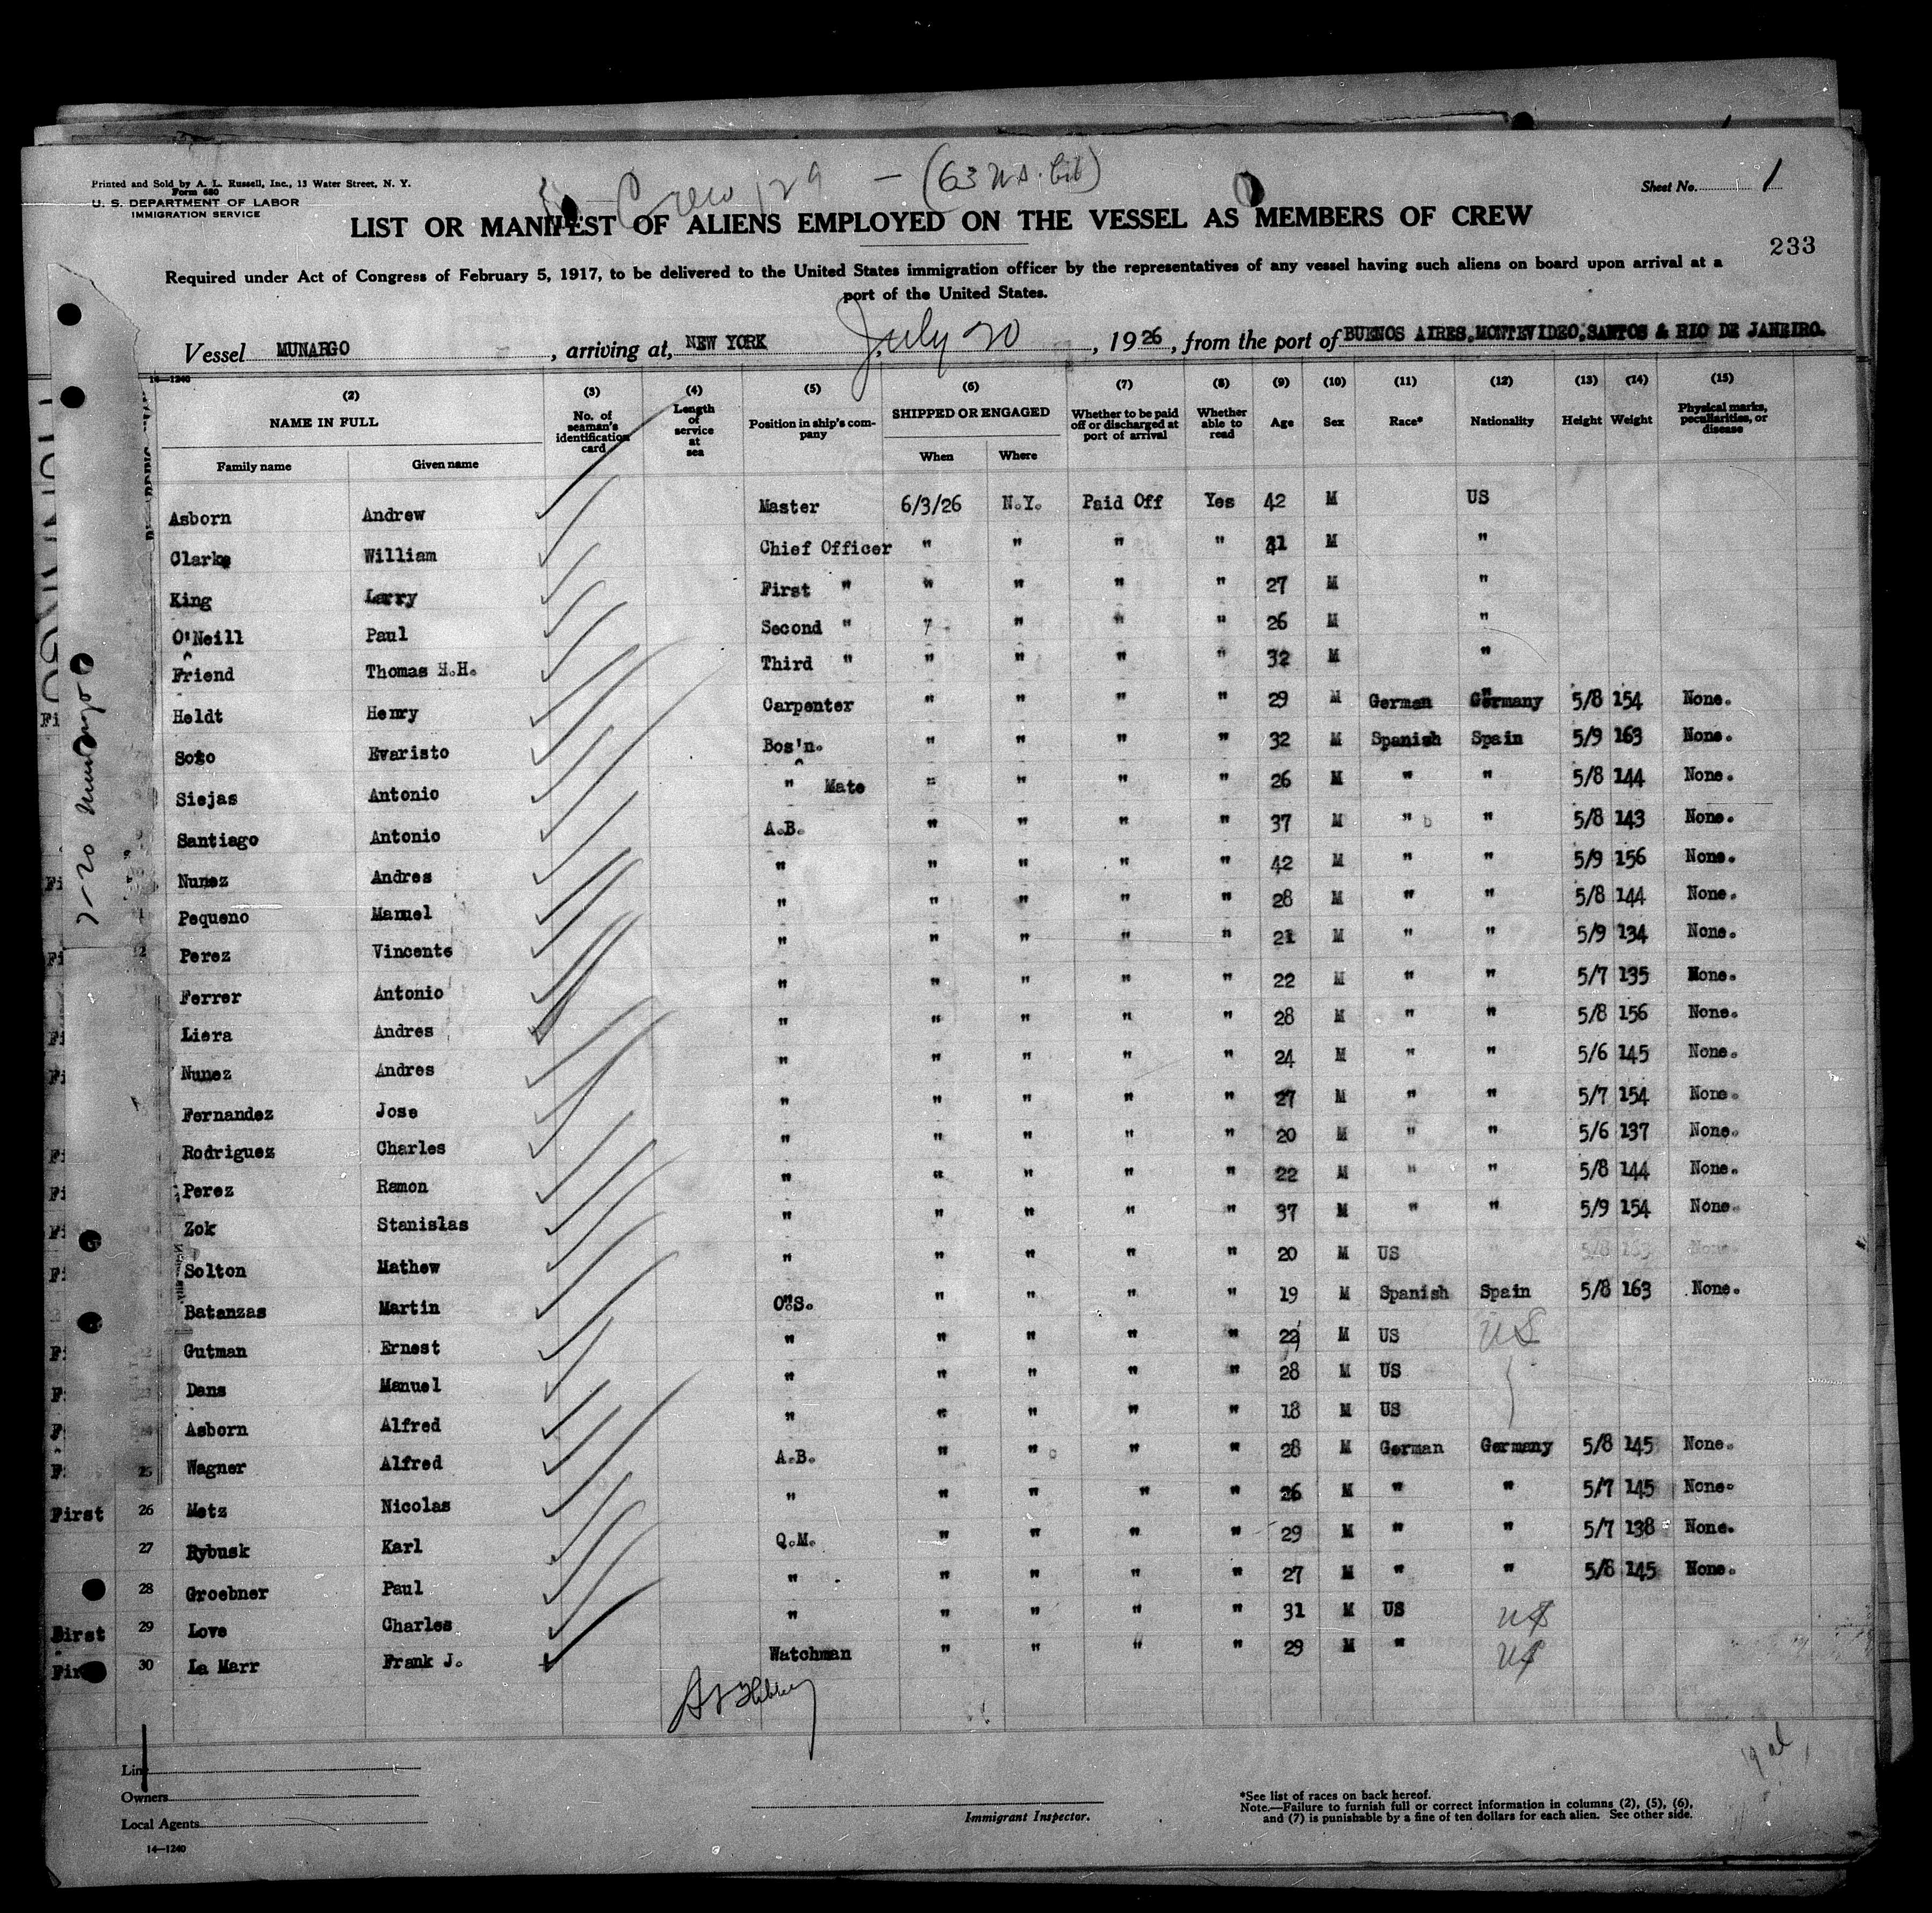 Crew 129 — (63 U.S. Cit)
Printed and Sold by A. L. Russell, Inc., 13 Water Street, N. Y.
Form 680
U. S. DEPARTMENT OF LABOR
IMMIGRATION SERVICE
Sheet No. 1
LIST OR MANIFEST OF ALIENS EMPLOYED ON THE VESSEL AS MEMBERS OF CREW
233
Required under Act of Congress of February 5, 1917, to be delivered to the United States immigration officer by the representatives of any vessel having such aliens on board upon arrival at a
port of the United States.
Vessel MUNARGO, arriving at, NEW YORK July 20, 1926, from the port of BUENOS AIRES, MONTEVIDEO, SANTOS & RIO DE JANEIRO.
14—1240
(2) (3) (4) (5) (6) (7) (8) (9) (10) (11) (12) (13) (14) (15)
NAME IN FULL No. of seaman's identification card Length of service at sea Position in ship's company SHIPPED OR ENGAGED Whether to be paid off or discharged at port of arrival Whether able to read Age Sex Race* Nationality Height Weight Physical marks, peculiarities, or disease
Family name Given name When Where
Asborn Andrew Master 6/3/26 N.Y. Paid Off Yes 42 M US
Clarke William Chief Officer " " " " 31 M "
King Larry First " " " " " 27 M "
O'Neill Paul Second " " " " " 26 M "
Friend Thomas H.H. Third " " " " " 32 M "
Heldt Henry Carpenter " " " " 29 M German Germany 5/8 154 None.
Soto Evaristo Bos'n. " " " " 32 M Spanish Spain 5/9 163 None.
Siejas Antonio " Mate " " " " 26 M " " 5/8 144 None.
Santiago Antonio A.B. " " " " 37 M " " 5/8 143 None.
Nunez Andres " " " " " 42 M " " 5/9 156 None.
Pequeno Manuel " " " " " 28 M " " 5/8 144 None.
Perez Vincente " " " " " 21 M " " 5/9 134 None.
Ferrer Antonio " " " " " 22 M " " 5/7 135 None.
Liera Andres " " " " " 28 M " " 5/8 156 None.
Nunez Andres " " " " " 24 M " " 5/6 145 None.
Fernandez Jose " " " " " 27 M " " 5/7 154 None.
Rodriguez Charles " " " " " 20 M " " 5/6 137 None.
Perez Ramon " " " " " 22 M " " 5/8 144 None.
Zok Stanislas " " " " " 37 M " " 5/9 154 None.
Solton Mathew " " " " " 20 M US " 5/8 163 None.
Batanzas Martin O.S. " " " " 19 M Spanish Spain 5/8 163 None.
Gutman Ernest " " " " " 22 M US US
Dans Manuel " " " " " 28 M US
Asborn Alfred " " " " " 18 M US
25 Wagner Alfred A.B. " " " " 28 M German Germany 5/8 145 None.
First 26 Metz Nicolas " " " " " 26 M " " 5/7 145 None.
27 Rybusk Karl Q.M. " " " " 29 M " " 5/7 138 None.
28 Groebner Paul " " " " " 27 M " " 5/8 145 None.
First 29 Love Charles " " " " " 31 M US US
30 La Marr Frank J. Watchman " " " " 29 M " US
7-20 Munargo
Line
Owners
Local Agents
14—1240
Immigrant Inspector.
*See list of races on back hereof.
Note.—Failure to furnish full or correct information in columns (2), (5), (6),
and (7) is punishable by a fine of ten dollars for each alien. See other side.